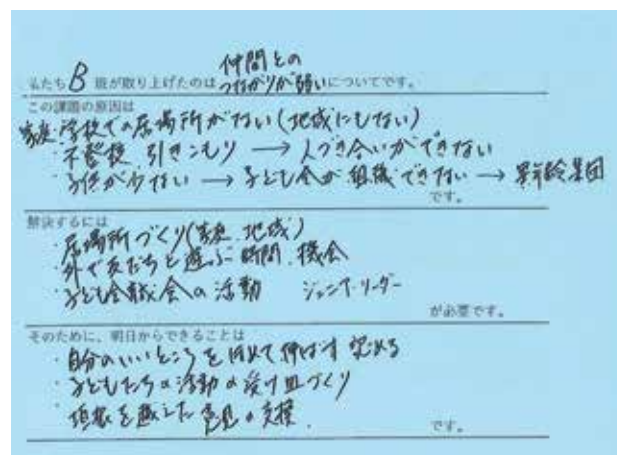 仲間との
私たち B 班が取り上げたのは つながりが弱い についてです。
この課題の原因は
家庭・学校での居場所がない(地域にもない)
・不登校 引きこもり → 人づき合いができない
・子供が少ない → 子ども会が組織できない → 異年齢集団
です。
解決するには
・居場所づくり(家庭、地域)
・外で友だちと遊ぶ時間、機会
・子ども会 会の活動 ジュニアリーダー
が必要です。
そのために、明日からできることは
・自分のいいところをほめて伸ばす 認める
・子どもたちの活動の受け皿づくり
・垣根を越えた 意見の交換
です。